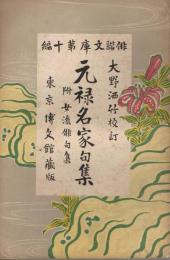 俳諧文庫第十編
大野洒竹校訂
元禄名家句集
附女流俳句集
東京博文館蔵版